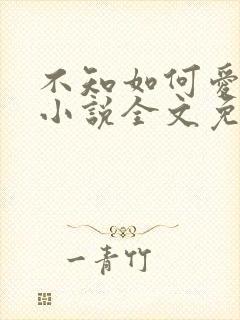 不知如何爱
小说全文免
一青竹